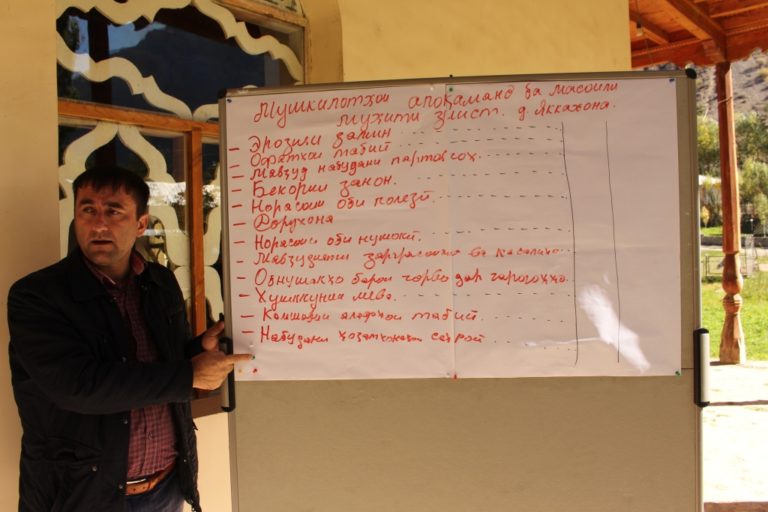 Мушкилотҳои алоқаманд ба масоили
муҳити зист. д. Яккахона.
- Эрозияи замин
- Офатҳои табиӣ
- Мавҷуд набудани партовгоҳ.
- Бекории занон.
- Норасоии оби полезӣ.
- Дорухона
- Норасоии оби нушокӣ.
- Мавҷудияти зараррасонҳо ва касалиҳо
- Обнушакҳо барои чорво дар чарогоҳҳо.
- Хушккунии мева.
- Камшавии алафҳои табиӣ.
- Набудани ҳоҷатхонаҳои саҳроӣ